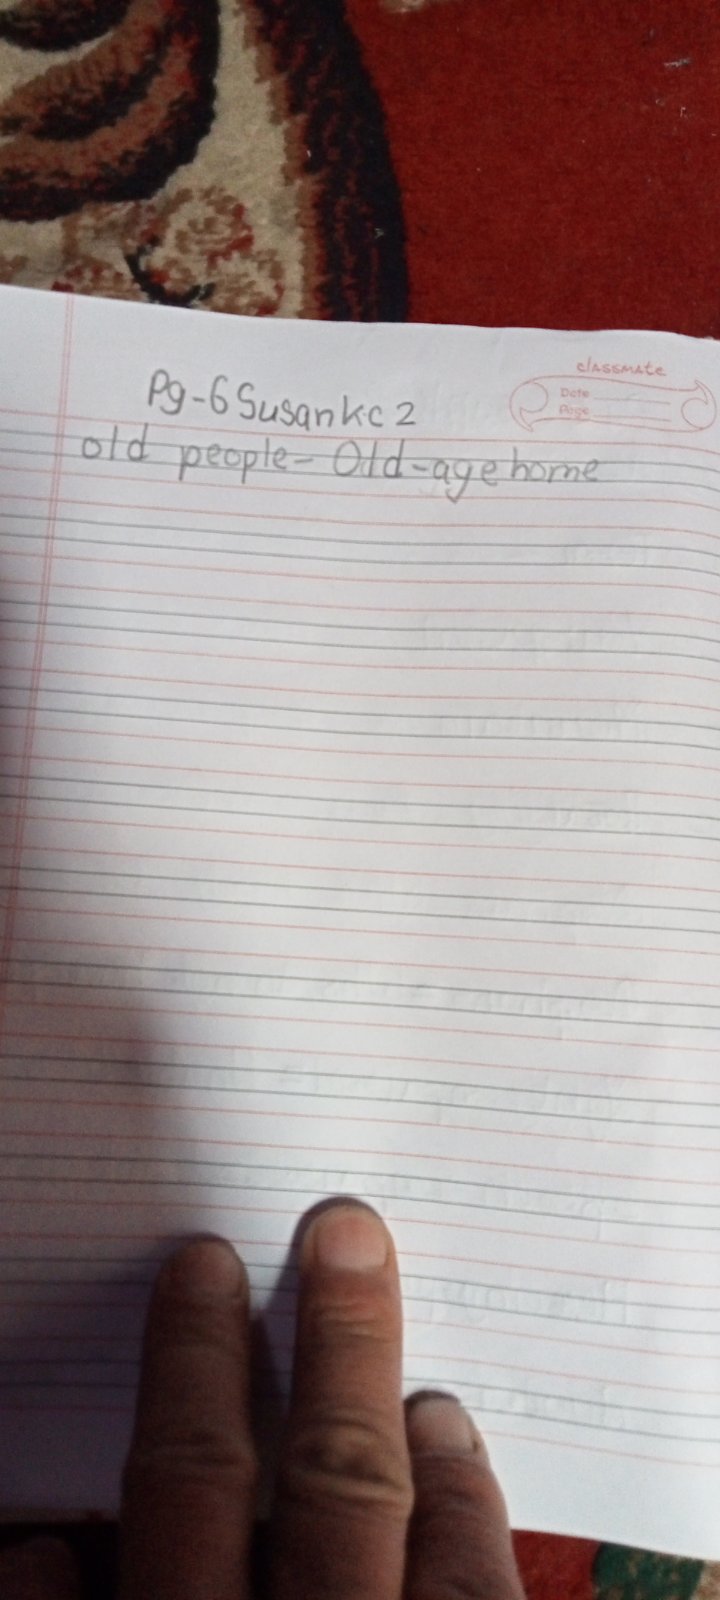 classmate
Date
Page
Pg-6 Susan kc 2
old people- Old-age home